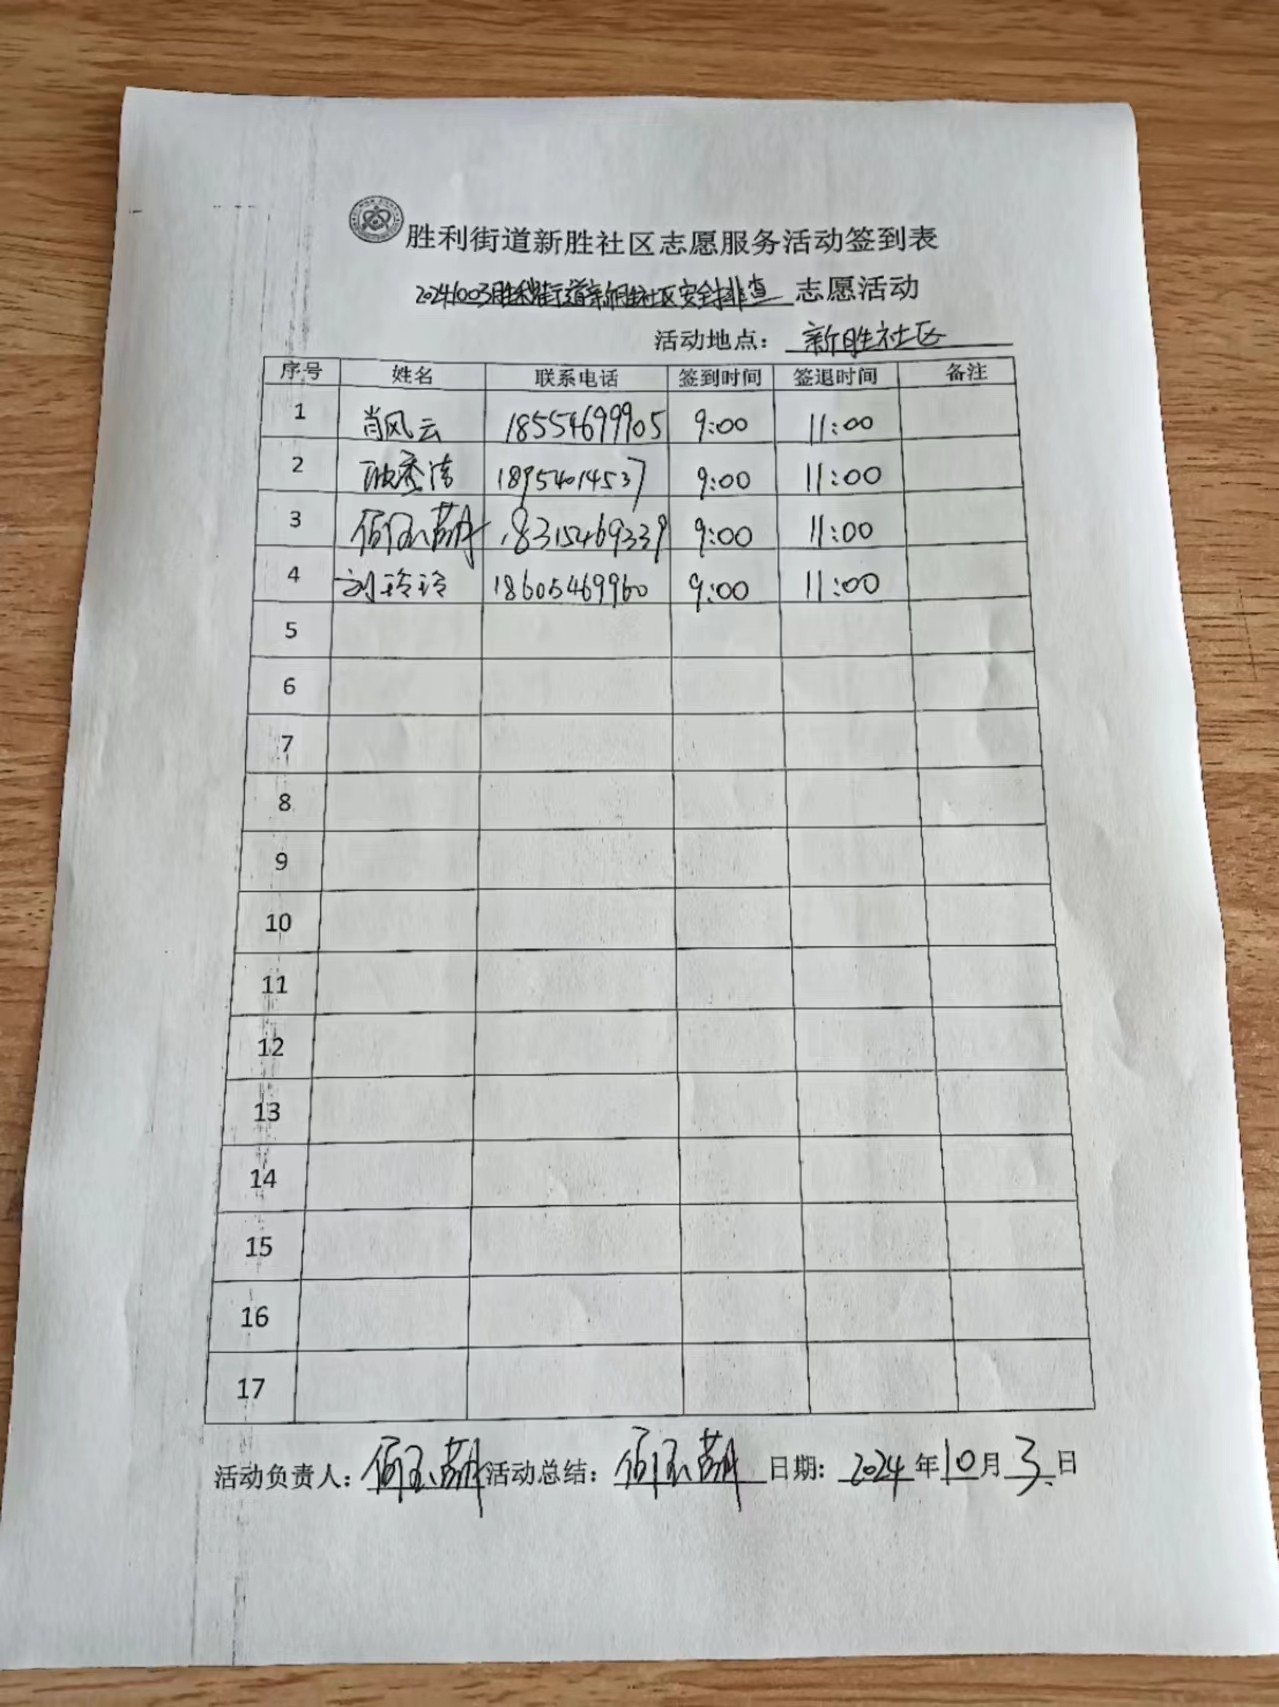 胜利街道新胜社区志愿服务活动签到表
20241003胜利街道新胜社区安全排查 志愿活动
活动地点：新胜社区
序号 姓名 联系电话 签到时间 签退时间 备注
1 肖风云 18554699905 9:00 11:00
2 18954014537 9:00 11:00
3 18315469339 9:00 11:00
4 刘玲玲 18605469960 9:00 11:00
5
6
7
8
9
10
11
12
13
14
15
16
17
活动负责人： 活动总结： 日期: 2024年10月3日